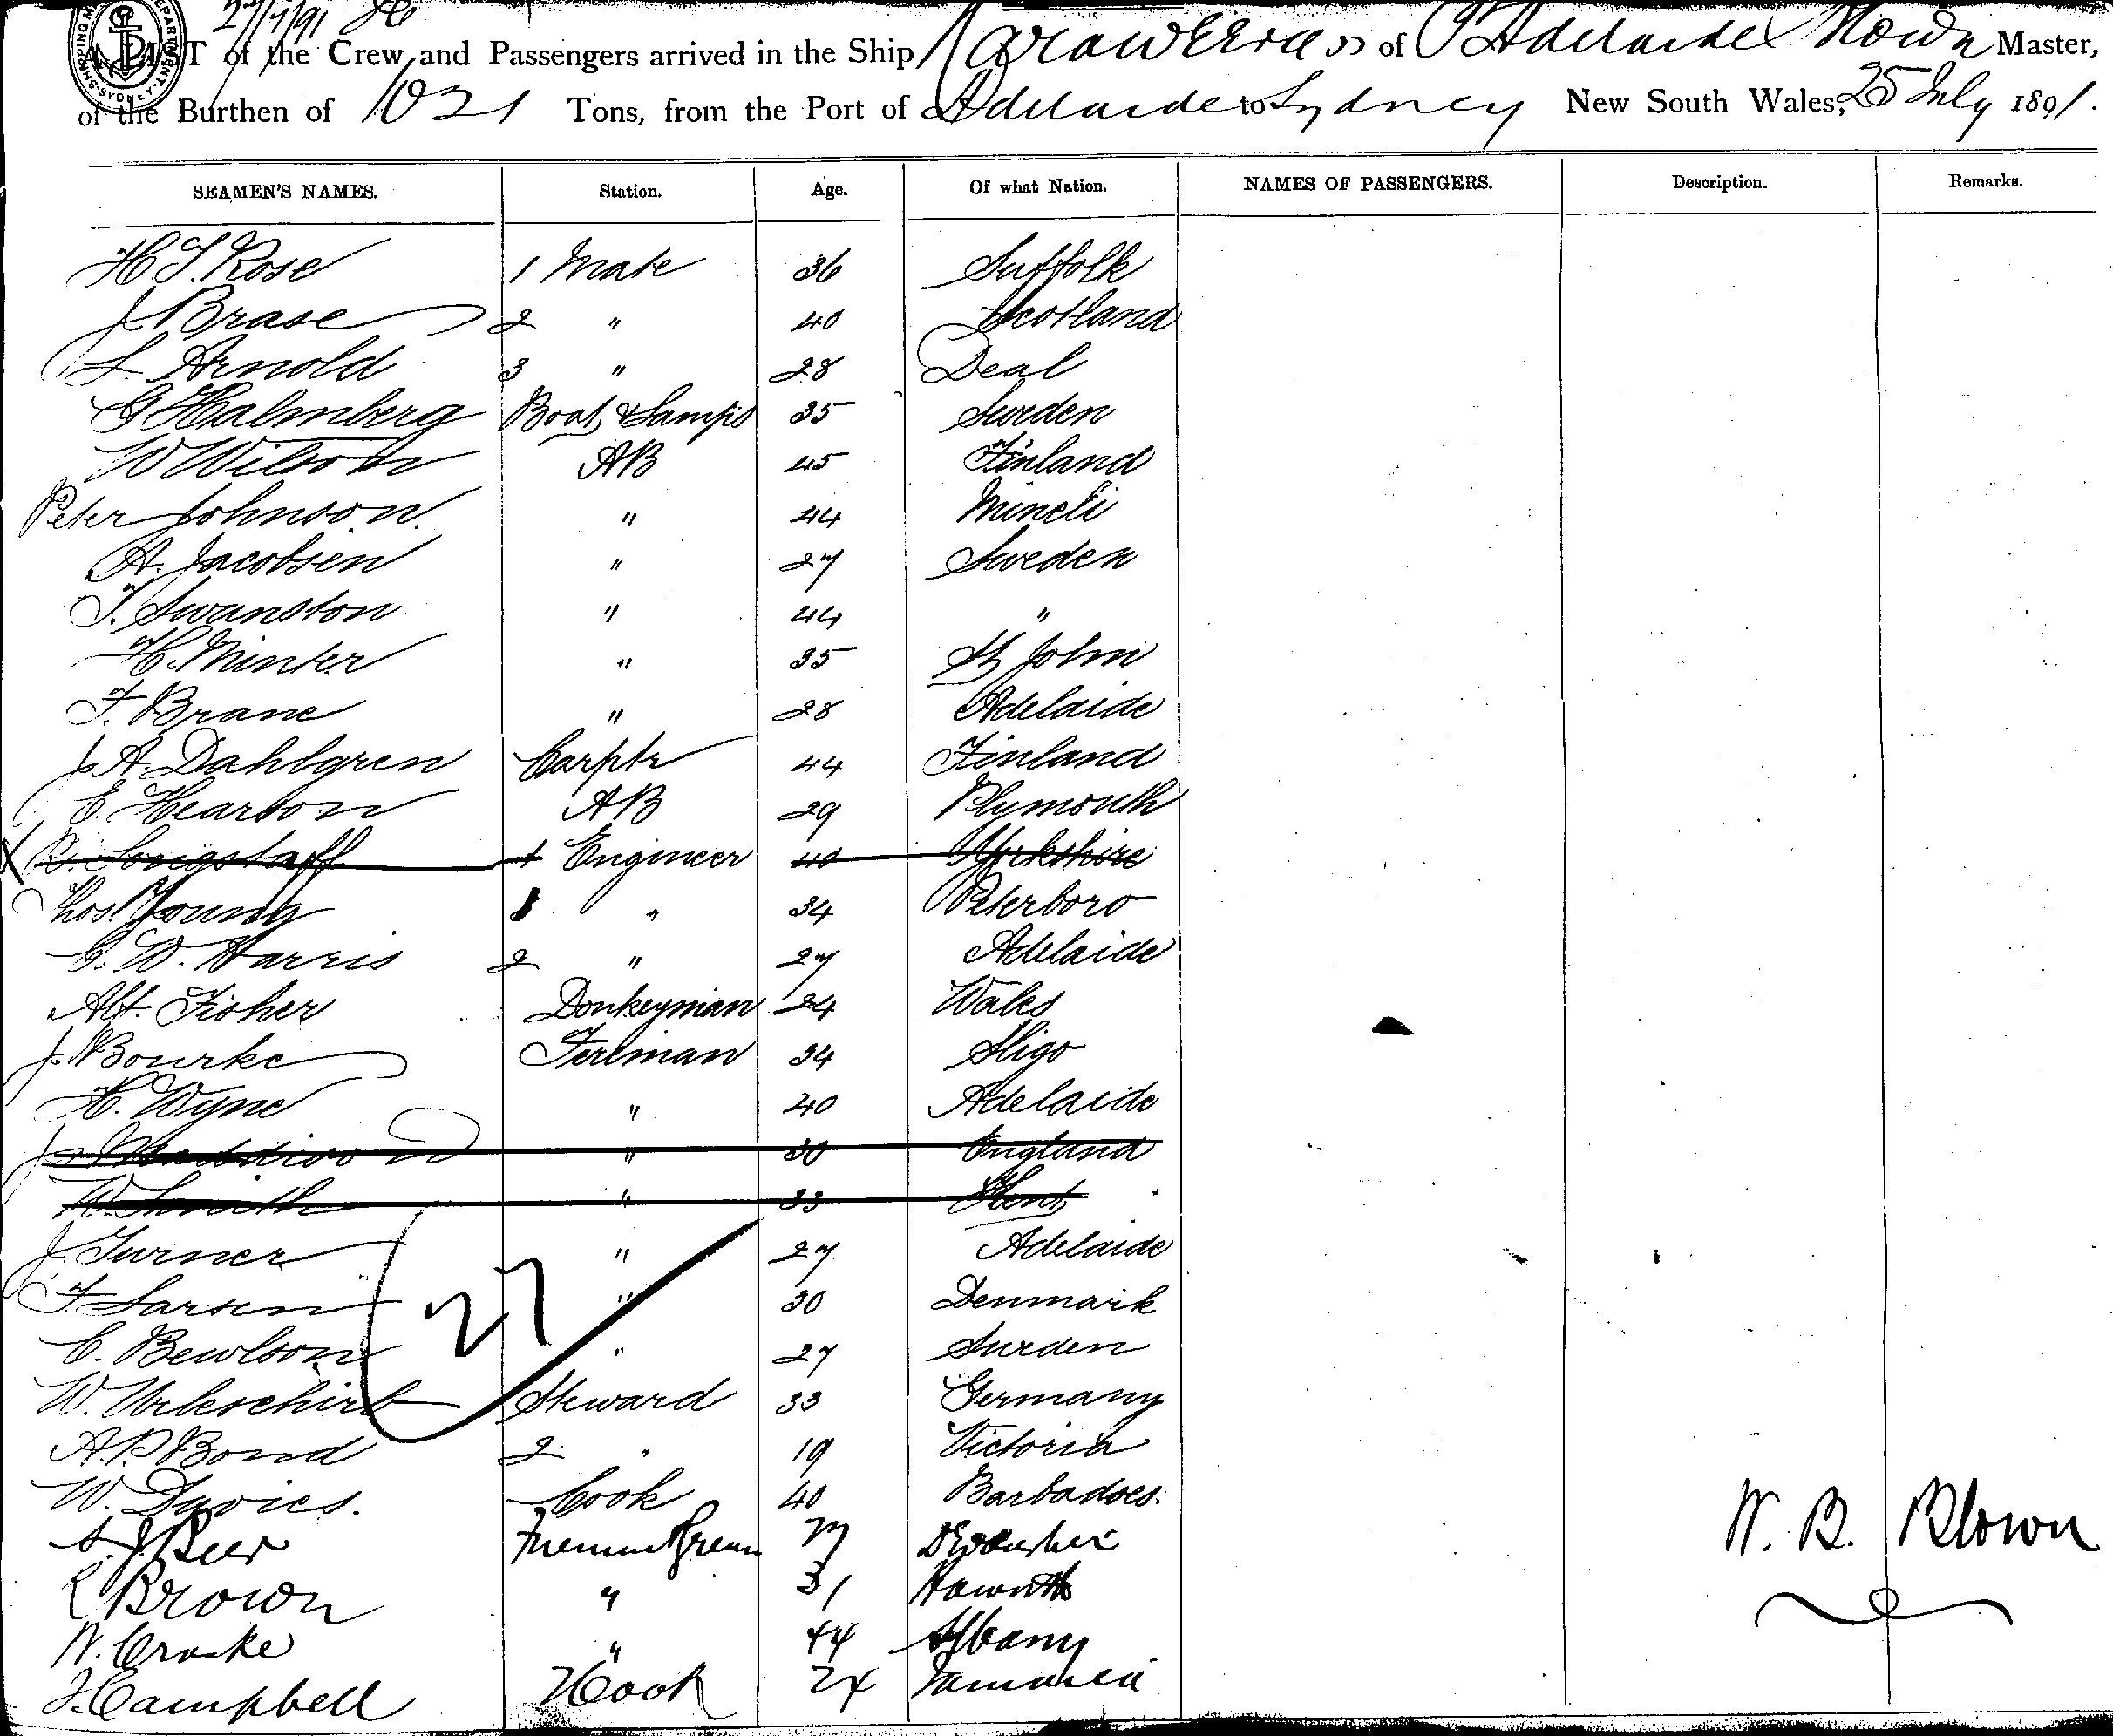 27/7/91
A LIST of the Crew and Passengers arrived in the Ship Karaweera ss of Adelaide Blown Master,
of the Burthen of 1021 Tons, from the Port of Adelaide to Sydney New South Wales, 25 July 1891.
SEAMEN'S NAMES. Station. Age. Of what Nation. NAMES OF PASSENGERS. Description. Remarks.
H.T. Rose 1 Mate 36 Suffolk
J Brase 2 " 40 Scotland
L Arnold 3 " 28 Deal
G Halmberg Boats & Lamps 35 Sweden
W Wilson AB 45 Finland
Peter Johnson. " 44
A. Jacobsen " 27 Sweden
T. Swanston " 44 "
H. Minter " 35 St John
F. Brane " 28 Adelaide
J. A. Dahlgren Carptr 44 Finland
E. Hearson AB 29 Plymouth
R. Longstaff 1 Engineer 40 Yorkshire
Thos Young 1 " 34 Peterboro
G. W. Harris 2 " 27 Adelaide
Alf Fisher Donkeyman 24 Wales
J. Bourke Fireman 34 Sligo
H. Wyne " 40 Adelaide
J " 30 England
W. Smith " 33 Kent
J. Turner " 27 Adelaide
F Larsen " 30 Denmark
C. Bewlson " 27 Sweden
W. Steward 33 Germany
A.P. Bond 2 " 19 Victoria
W. Davies. Cook 40 Barbadoes.
27
A. J. Beer
R Brown " 31
W. Croake " 44 Albany
J. Campbell 2 Cook 24 Jamaica
W. B. Blown